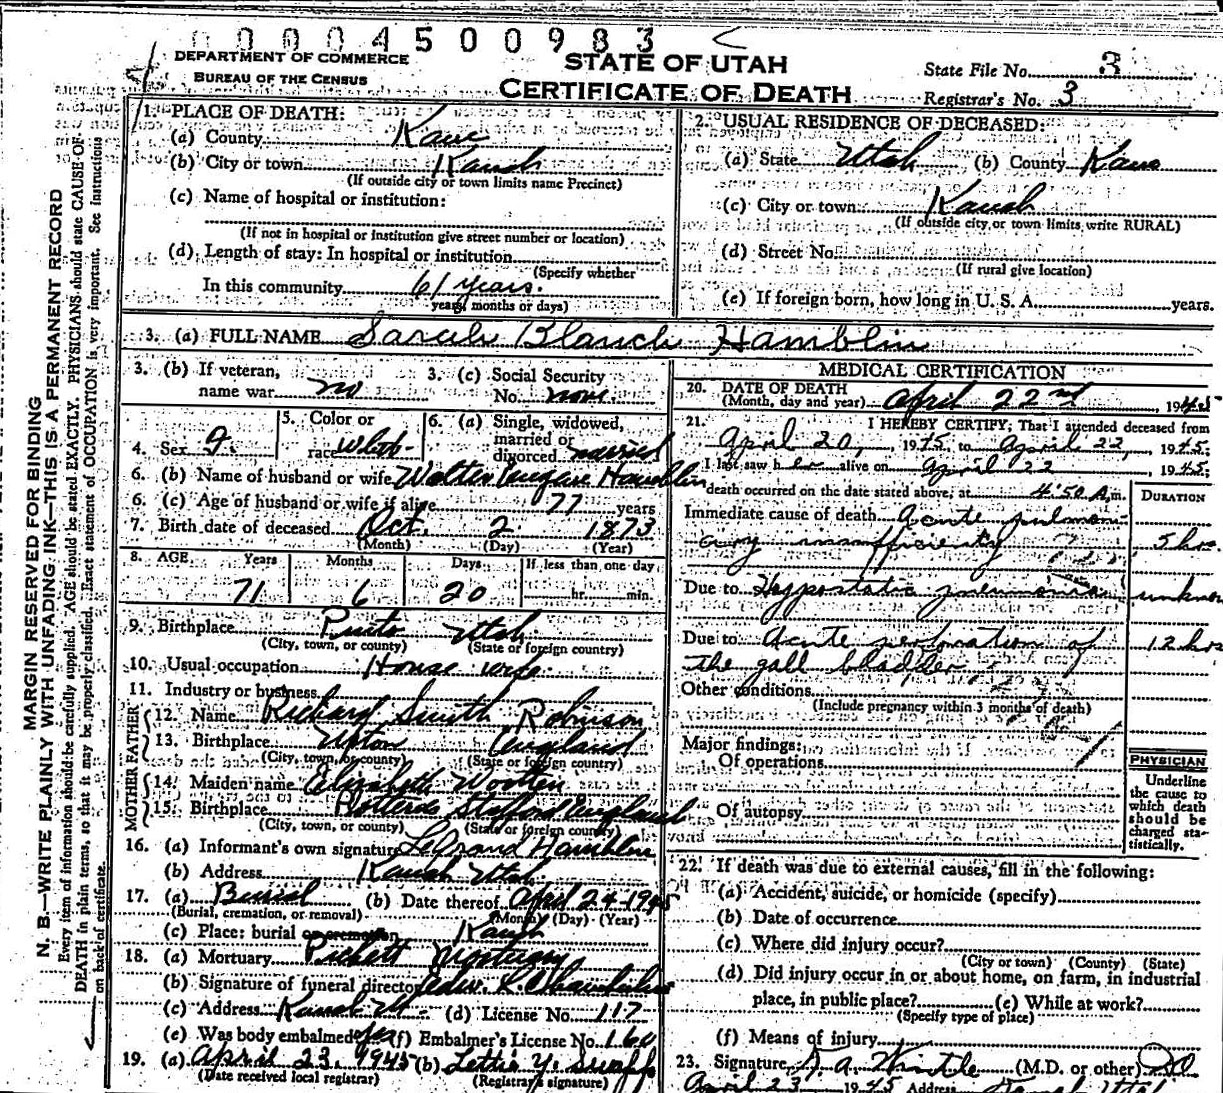 0004500983
DEPARTMENT OF COMMERCE
BUREAU OF THE CENSUS
STATE OF UTAH
CERTIFICATE OF DEATH
State File No. 3
Registrar's No. 3
MARGIN RESERVED FOR BINDING
N. B.—WRITE PLAINLY WITH UNFADING INK—THIS IS A PERMANENT RECORD
Every item of information should be carefully supplied. AGE should be stated EXACTLY. PHYSICIANS should state CAUSE OF
DEATH in plain terms, so that it may be properly classified. Exact statement of OCCUPATION is very important. See Instructions
on back of certificate.
1. PLACE OF DEATH:
(a) County Kane
(b) City or town Kanab
(If outside city or town limits name Precinct)
(c) Name of hospital or institution:
(If not in hospital or institution give street number or location)
(d) Length of stay: In hospital or institution
(Specify whether
In this community 61 years.
years, months or days)
2. USUAL RESIDENCE OF DECEASED:
(a) State Utah (b) County Kane
(c) City or town Kanab
(If outside city or town limits write RURAL)
(d) Street No.
(If rural give location)
(e) If foreign born, how long in U. S. A. years.
3. (a) FULL NAME Sarah Blanch Hamblin
3. (b) If veteran,
name war no
3. (c) Social Security
No. none.
4. Sex F.
5. Color or
race White
6. (a) Single, widowed,
married or
divorced married
6. (b) Name of husband or wife Walter Eugene Hamblin
6. (c) Age of husband or wife if alive 77 years
7. Birth date of deceased Oct. 2 1873
(Month) (Day) (Year)
8. AGE Years Months Days If less than one day
71 6 20 hr. min.
9. Birthplace Pinto Utah
(City, town, or county) (State or foreign country)
10. Usual occupation House wife
11. Industry or business
FATHER
12. Name Richard Smith Robinson
13. Birthplace Upton England
(City, town, or county) (State or foreign country)
MOTHER
14. Maiden name Elizabeth Wootten
15. Birthplace Stafford England
(City, town, or county) (State or foreign country)
16. (a) Informant's own signature LeGrand Hamblin
(b) Address Kanab Utah
17. (a) Burial (b) Date thereof April 24 1945
(Burial, cremation, or removal) (Month) (Day) (Year)
(c) Place: burial or cremation Kanab
18. (a) Mortuary Pickett Mortuary
(b) Signature of funeral director Edw. L. Chamberlain
(c) Address Kanab Ut. (d) License No. 117
(e) Was body embalmed yes (f) Embalmer's License No. 160
19. (a) April 23, 1945 (b) Lettie Y. Swapp
(Date received local registrar) (Registrar's signature)
MEDICAL CERTIFICATION
20. DATE OF DEATH
(Month, day and year) April 22nd, 1945
21. I HEREBY CERTIFY, That I attended deceased from
April 20, 1945, to April 22, 1945.
I last saw her alive on April 22 1945.
death occurred on the date stated above, at 4:50 A.m.
DURATION
Immediate cause of death Acute pulmon-
ary insufficiency 5 hrs.
Due to Hypostatic pneumonia unknown
Due to Acute perforation of 12 hrs
the gall bladder
Other conditions
(Include pregnancy within 3 months of death)
Major findings:
Of operations
Of autopsy
PHYSICIAN
Underline
the cause to
which death
should be
charged sta-
tistically.
22. If death was due to external causes, fill in the following:
(a) Accident, suicide, or homicide (specify)
(b) Date of occurrence
(c) Where did injury occur?
(City or town) (County) (State)
(d) Did injury occur in or about home, on farm, in industrial
place, in public place? (e) While at work?
(Specify type of place)
(f) Means of injury
23. Signature Wintle (M.D. or other)
April 23 1945 Address Kanab Utah